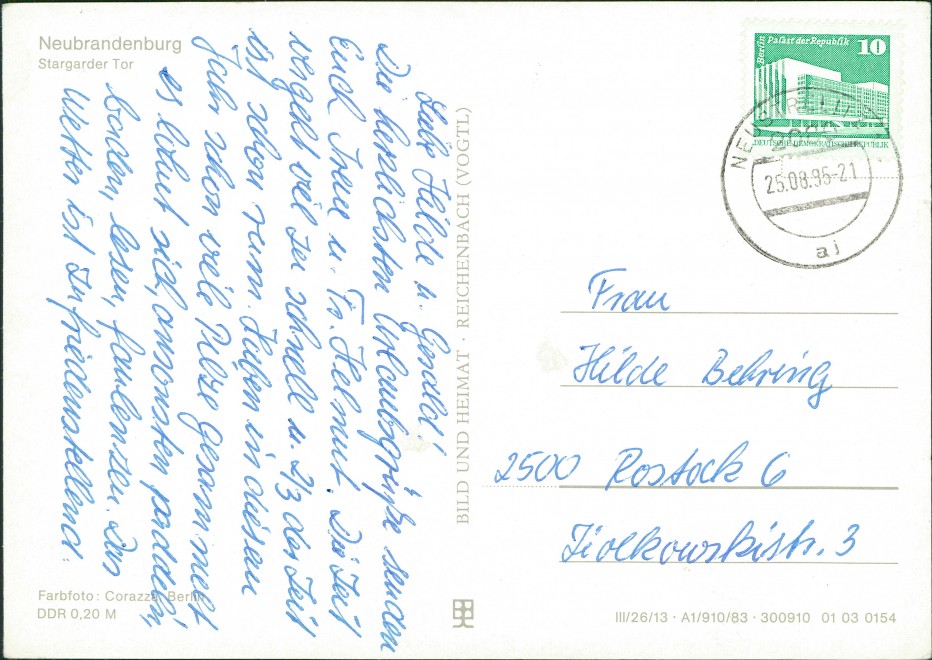 Neubrandenburg
Stargarder Tor
Liebe Hilde u. Gerold!
Die herzlichsten Urlaubsgrüße senden
Euch Irene u. Fr. Helmut. Die Zeit
vergeht viel zu schnell u. 2/3 der Zeit
ist schon rum. Haben in diesen
Jahr schon viele Pilze gesammelt
es lohnt sich, ansonsten paddeln,
baden, lesen, faulenzen. Das
Wetter ist zufriedenstellend.
Farbfoto: Corazza, Berlin
DDR 0,20 M
BILD UND HEIMAT · REICHENBACH (VOGTL)
Berlin Palast der Republik 10
DEUTSCHE DEMOKRATISCHE REPUBLIK
25.08.86-21
aj
Frau
Hilde Behring
2500 Rostock 6
Ziolkowskistr. 3
III/26/13 · A1/910/83 · 300910 01 03 0154